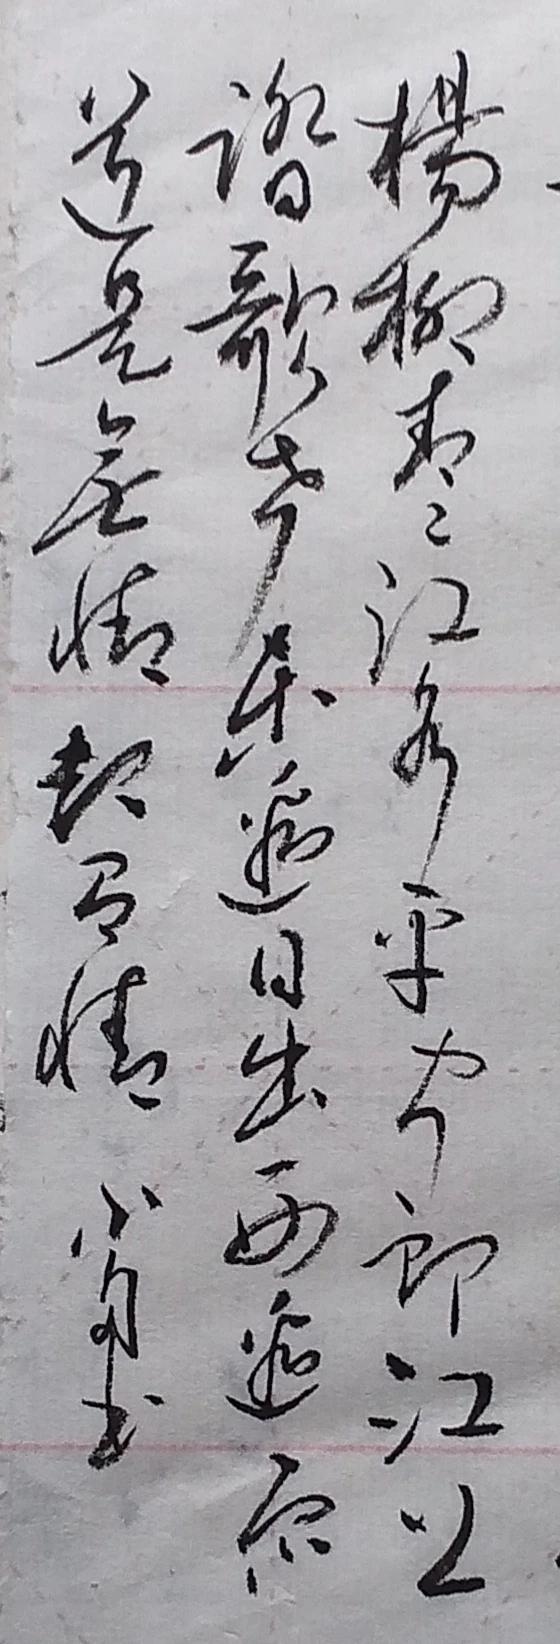 楊柳青々江水平聞郎江上
踏歌聲東邊日出西邊雨
道是無情却有情 小書